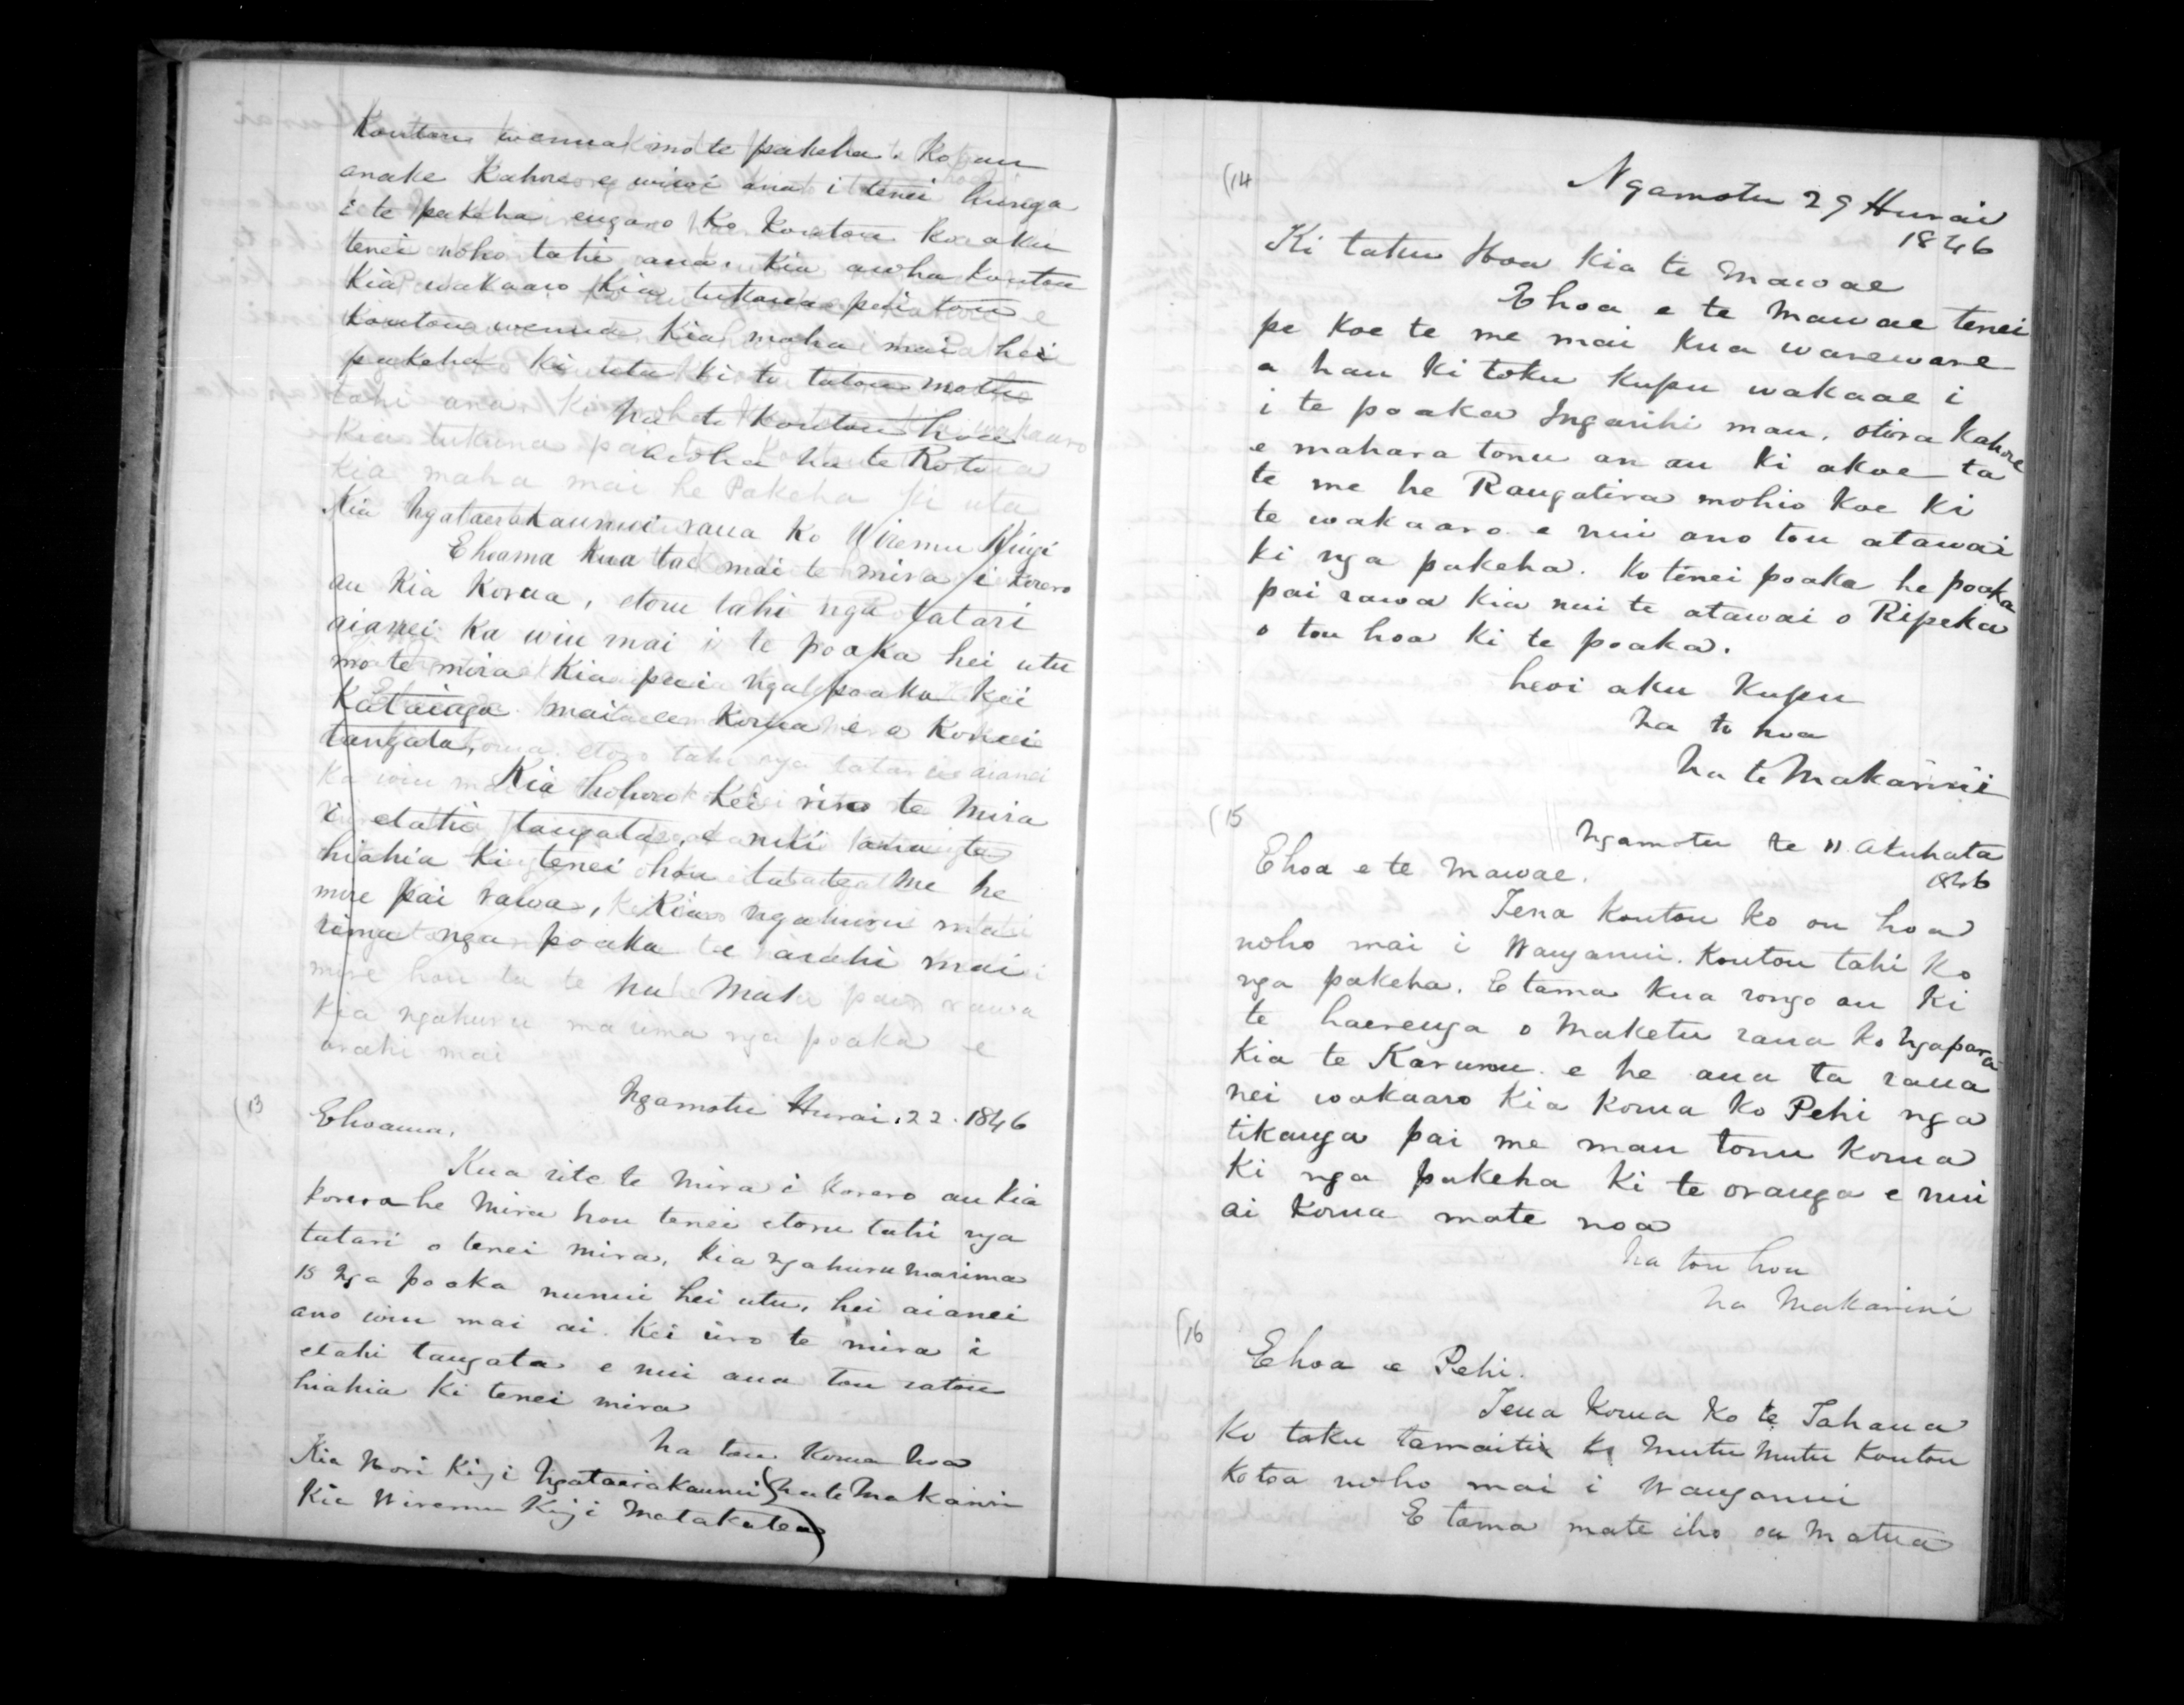 Koutou wenua mo te pakeha. Ko au
anake Kahore e wiwi ana i tenei hunga
i te pakeha engaro Ko Koutou Ko aku
tenei noho tahi ana. Kia awha Koutou
Kia wakaaro Kia tukana pai tou
Koutou wenua Kia maha mai hei
pakeha ki uta ki te tatou motu
Na to Koutou hoa
Aroha na te Roto
Kia Ngataerakaunui raua Ko Wiremu Kingi
Ehoama Kua tae mai te mira i korero
au Kia Korua, etoru tahi nga tatari
aianei Ka wiu mai i te poaka hei utu
mo te mira Kia pai nga poaka Kei
Kataiaga mai e Korua e o Konei
tangata,
Kia hohoro Kei riro te Mira
i etahi tangata, e nui ana te
hiahia ki tenei hou ta te Me he
mire pai rawa, Kia ngahuru ma
rima nga poaka te arahi mai
na Maka
(13
Ngamotu Hurai. 22. 1846
Ehoama.
Kua rite te Mira i Korero au Kia
Korua he Mira hou tenei etoru tahi nga
tatari o tenei mira, Kia ngahuru marima
15 nga poaka nunui hei utu, hei aianei
ano wiu mai ai. Kei riro te mira i
etahi tangata e nui ana tou ratou
hiahia Ki tenei mira
na tou Korua hoa
Kia Hori Kigi Ngataerakaunui ) na te Makarini
Kia Wiremu Kigi Matakatea )
(14
Ngamotu 29 Hurai
1846
Ki taku Hoa Kia te Mawae
Ehoa e te Mawae tenei
pe Koe te me mai Kua wareware
a hau Ki toku Kupu wakaae i
i te poaka Ingarihi mau, otira Kahore
e mahara tonu an au Ki akoe ta
te me he Rangatira mohio Koe Ki
te wakaaro e nui ano tou atawai
Ki nga pakeha. Ko tenei poaka he poaka
pai rawa Kia nui te atawai o Ripeka
o tou hoa Ki te poaka.
heoi aku Kupu
Na to hoa
Na te Makarini
(15
Ngamotu te 11 Akuhata
1846
Ehoa e te Mawae.
Tena Koutou Ko ou hoa
noho mai i Wanganui. Koutou tahi Ko
nga pakeha. E tama Kua rongo au Ki
te haerenga o Maketu raua Ko Ngapara
Kia te Karuwu. e he ana ta raua
nei wakaaro Kia Korua Ko Pehi nga
tikanga pai me mau tonu Korua
Ki nga pakeha Ki te oranga e nui
ai Korua mate noa
Na tou hoa
Na Makarini
(16
Ehoa e Pehi.
Tena Korua Ko te Tahana
Ko taku tamaiti Ko Mutu Mutu Koutou
Katoa noho mai i Wanganui
E tama mate iho ou Matua